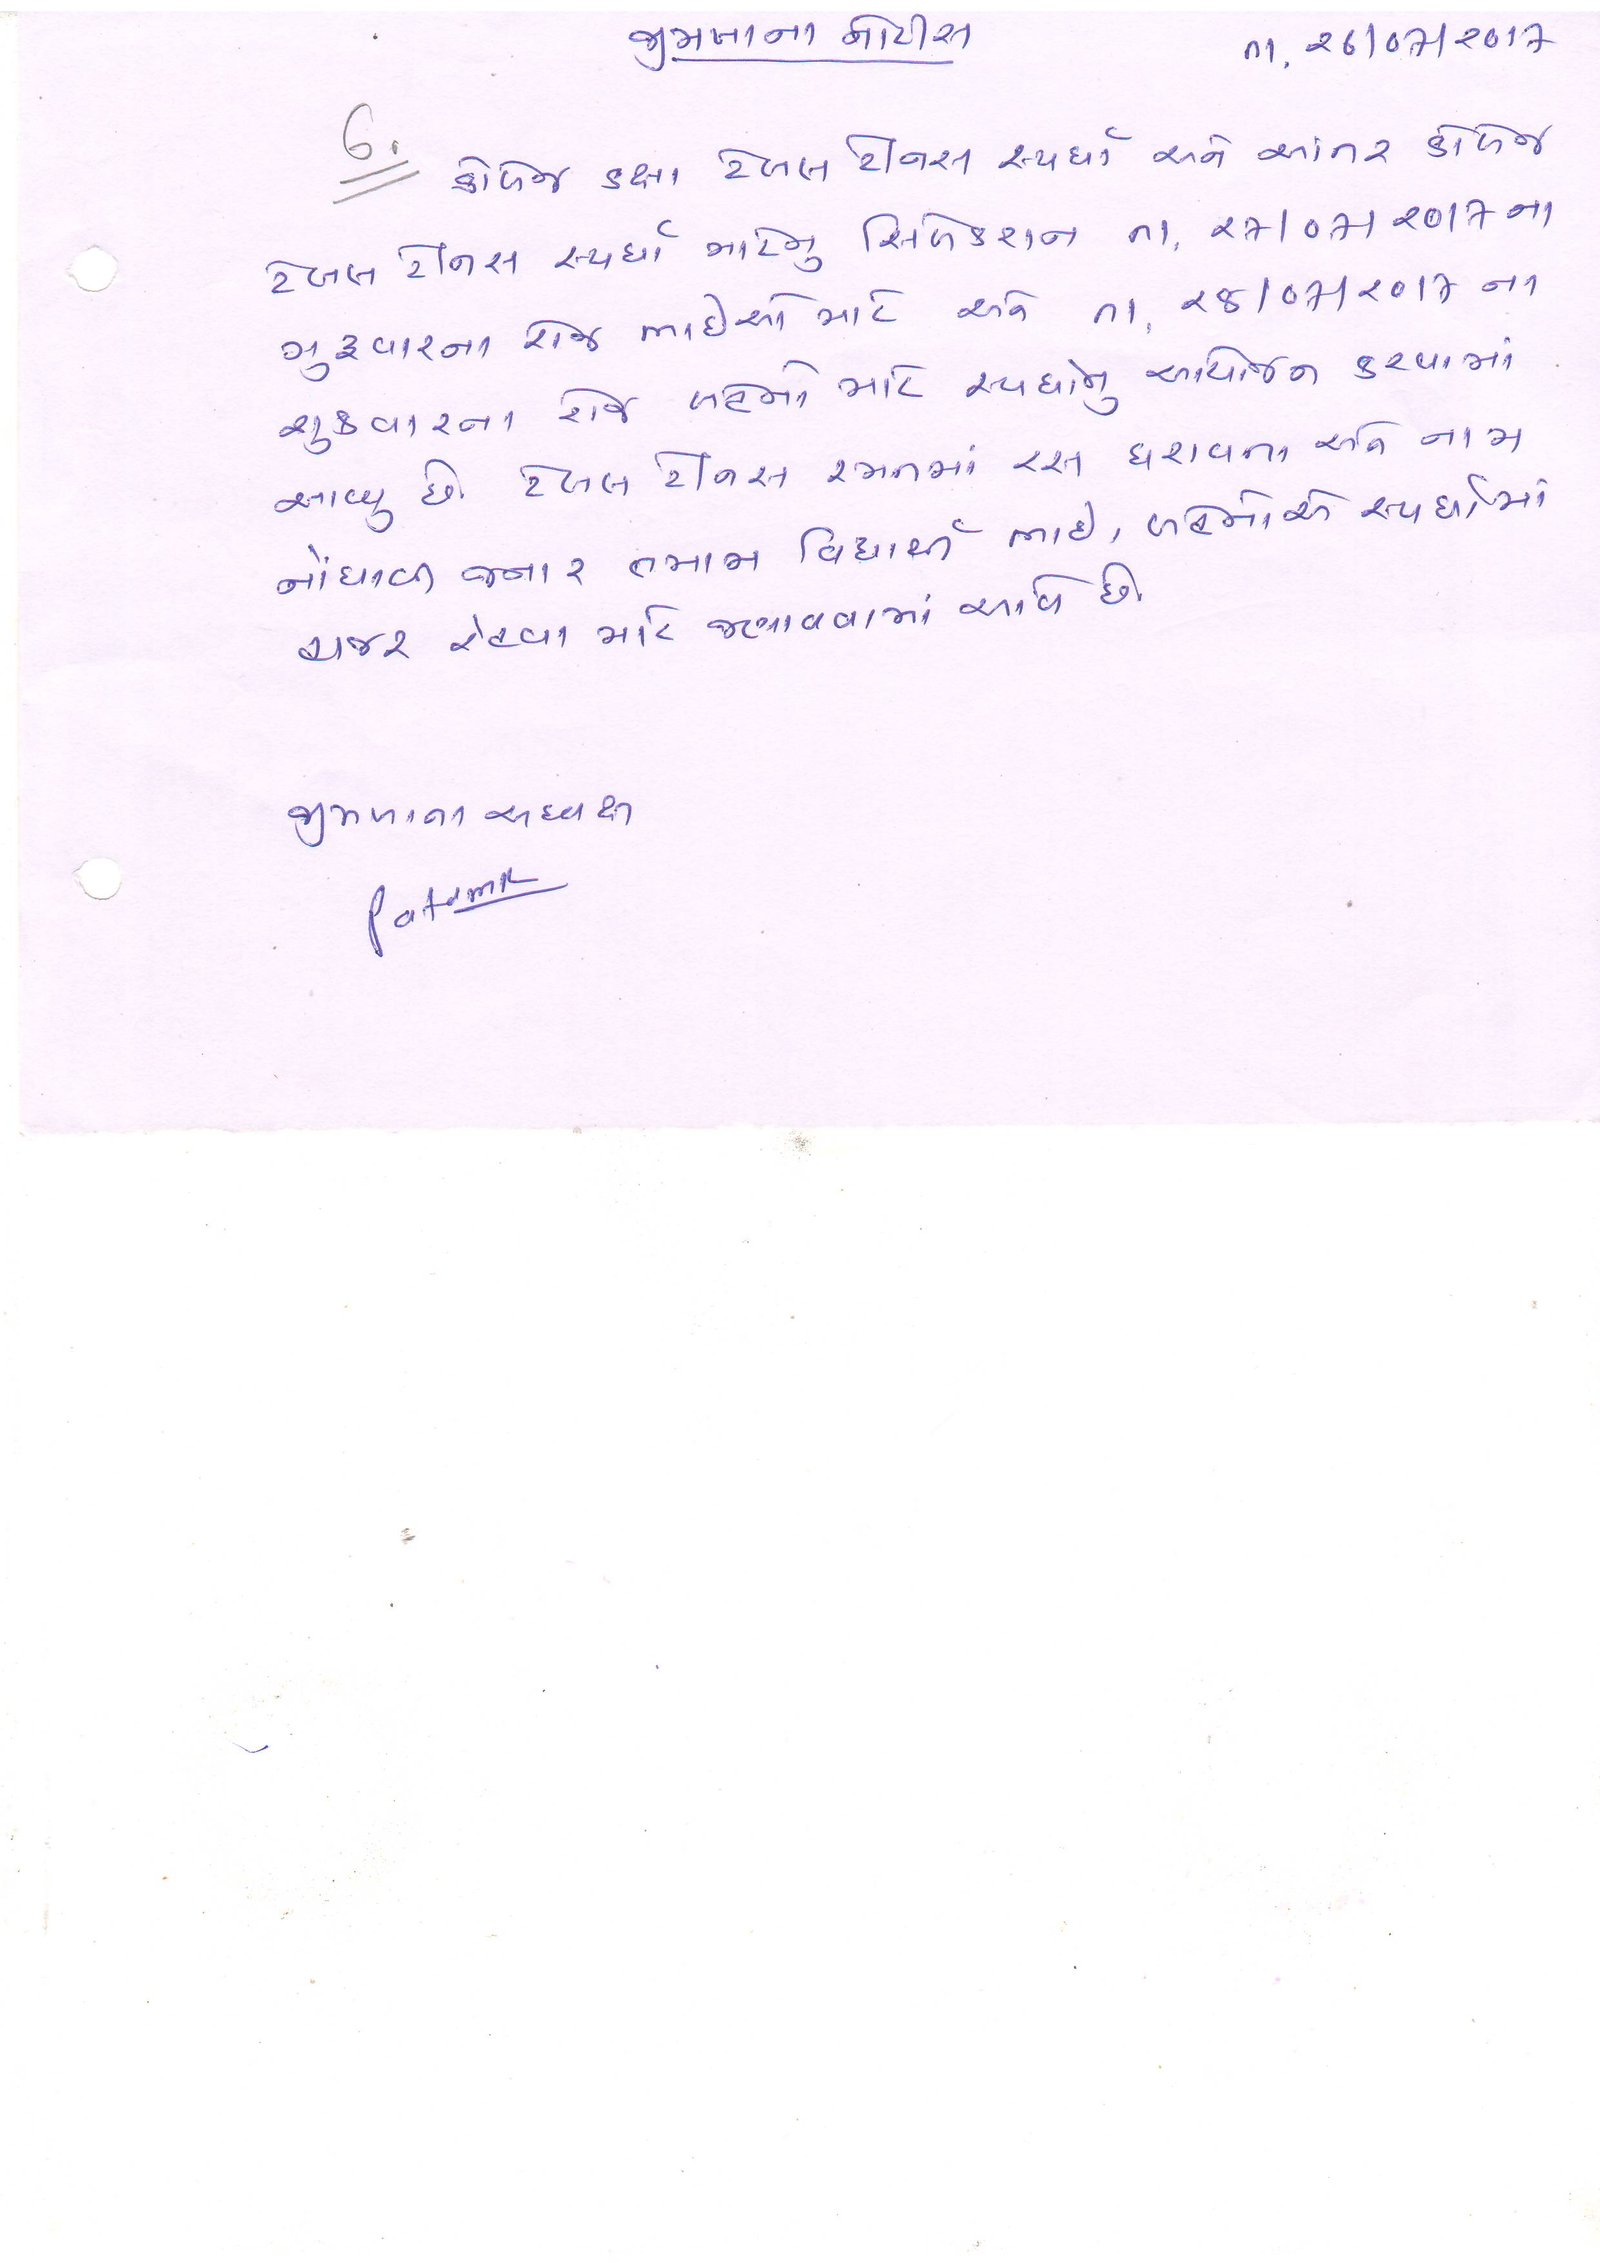 જીમખાના નોટીસ
તા. ૨૬/૦૭/૨૦૧૭
6.
કોલેજ કક્ષા ટેબલ ટેનિસ સ્પર્ધા અને આંતર કોલેજ
ટેબલ ટેનિસ સ્પર્ધા માટેનુ સિલેકશન તા. ૨૭/૦૭/૨૦૧૭ના
ગુરૂવારના રોજ ભાઈઓ માટે અને તા. ૨૮/૦૭/૨૦૧૭ ના
શુક્રવારના રોજ બહેનો માટે સ્પર્ધાનુ આયોજન કરવામાં
આવ્યુ છે. ટેબલ ટેનિસ રમતમાં રસ ધરાવતા અને નામ
નોંધાવી જનાર તમામ વિદ્યાર્થી ભાઈ, બહેનોએ સ્પર્ધામાં
હાજર રહેવા માટે જણાવવામાં આવે છે.
જીમખાના અધ્યક્ષ